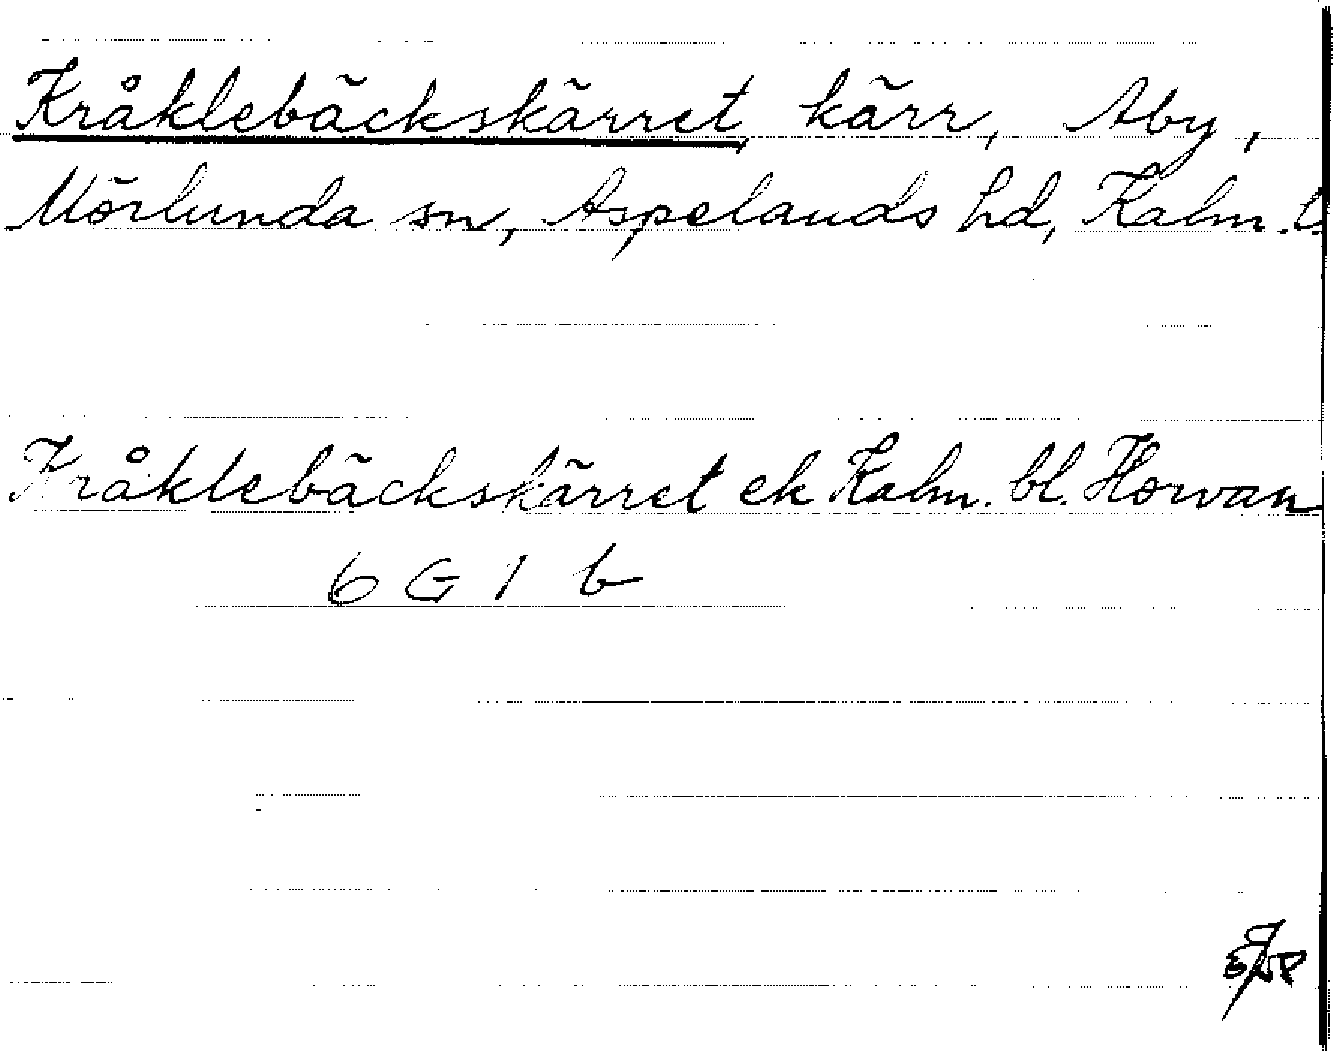 Kråklebäckskärret, kärr, Åby,
Mörlunda sn, Aspelands hd, Kalm. l.
Kråklebäckskärret ek Kalm. bl. Horvan
6 G 1 b